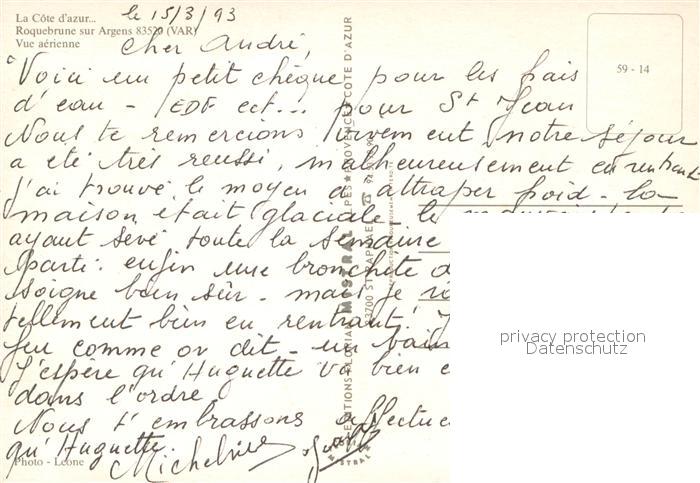 La Côte d'azur...
Roquebrune sur Argens 83520 (VAR)
Vue aérienne
le 15/3/93
59 - 14
Cher André,
Voici un petit chèque pour les frais
d'eau - EDF ect... pour St Jean
Nous te remercions vivement notre séjour
a été très reussi, malheureusement en rentrant
j'ai trouvé le moyen d'attraper froid - la
maison était glaciale, le
ayant sevé toute la semaine
parti. enfin une bronchite
soigne bien sûr - mais je
tellement bien en rentrant!
feu comme on dit - un bain
J'espère qu'Huguette va bien e
dans l'ordre.
Nous t'embrassons affectue
qu'Huguette.
Photo - Leone
MISTRAL
PROVENCE ★ COTE D'AZUR
83700 ST RAPHAEL
privacy protection
Datenschutz